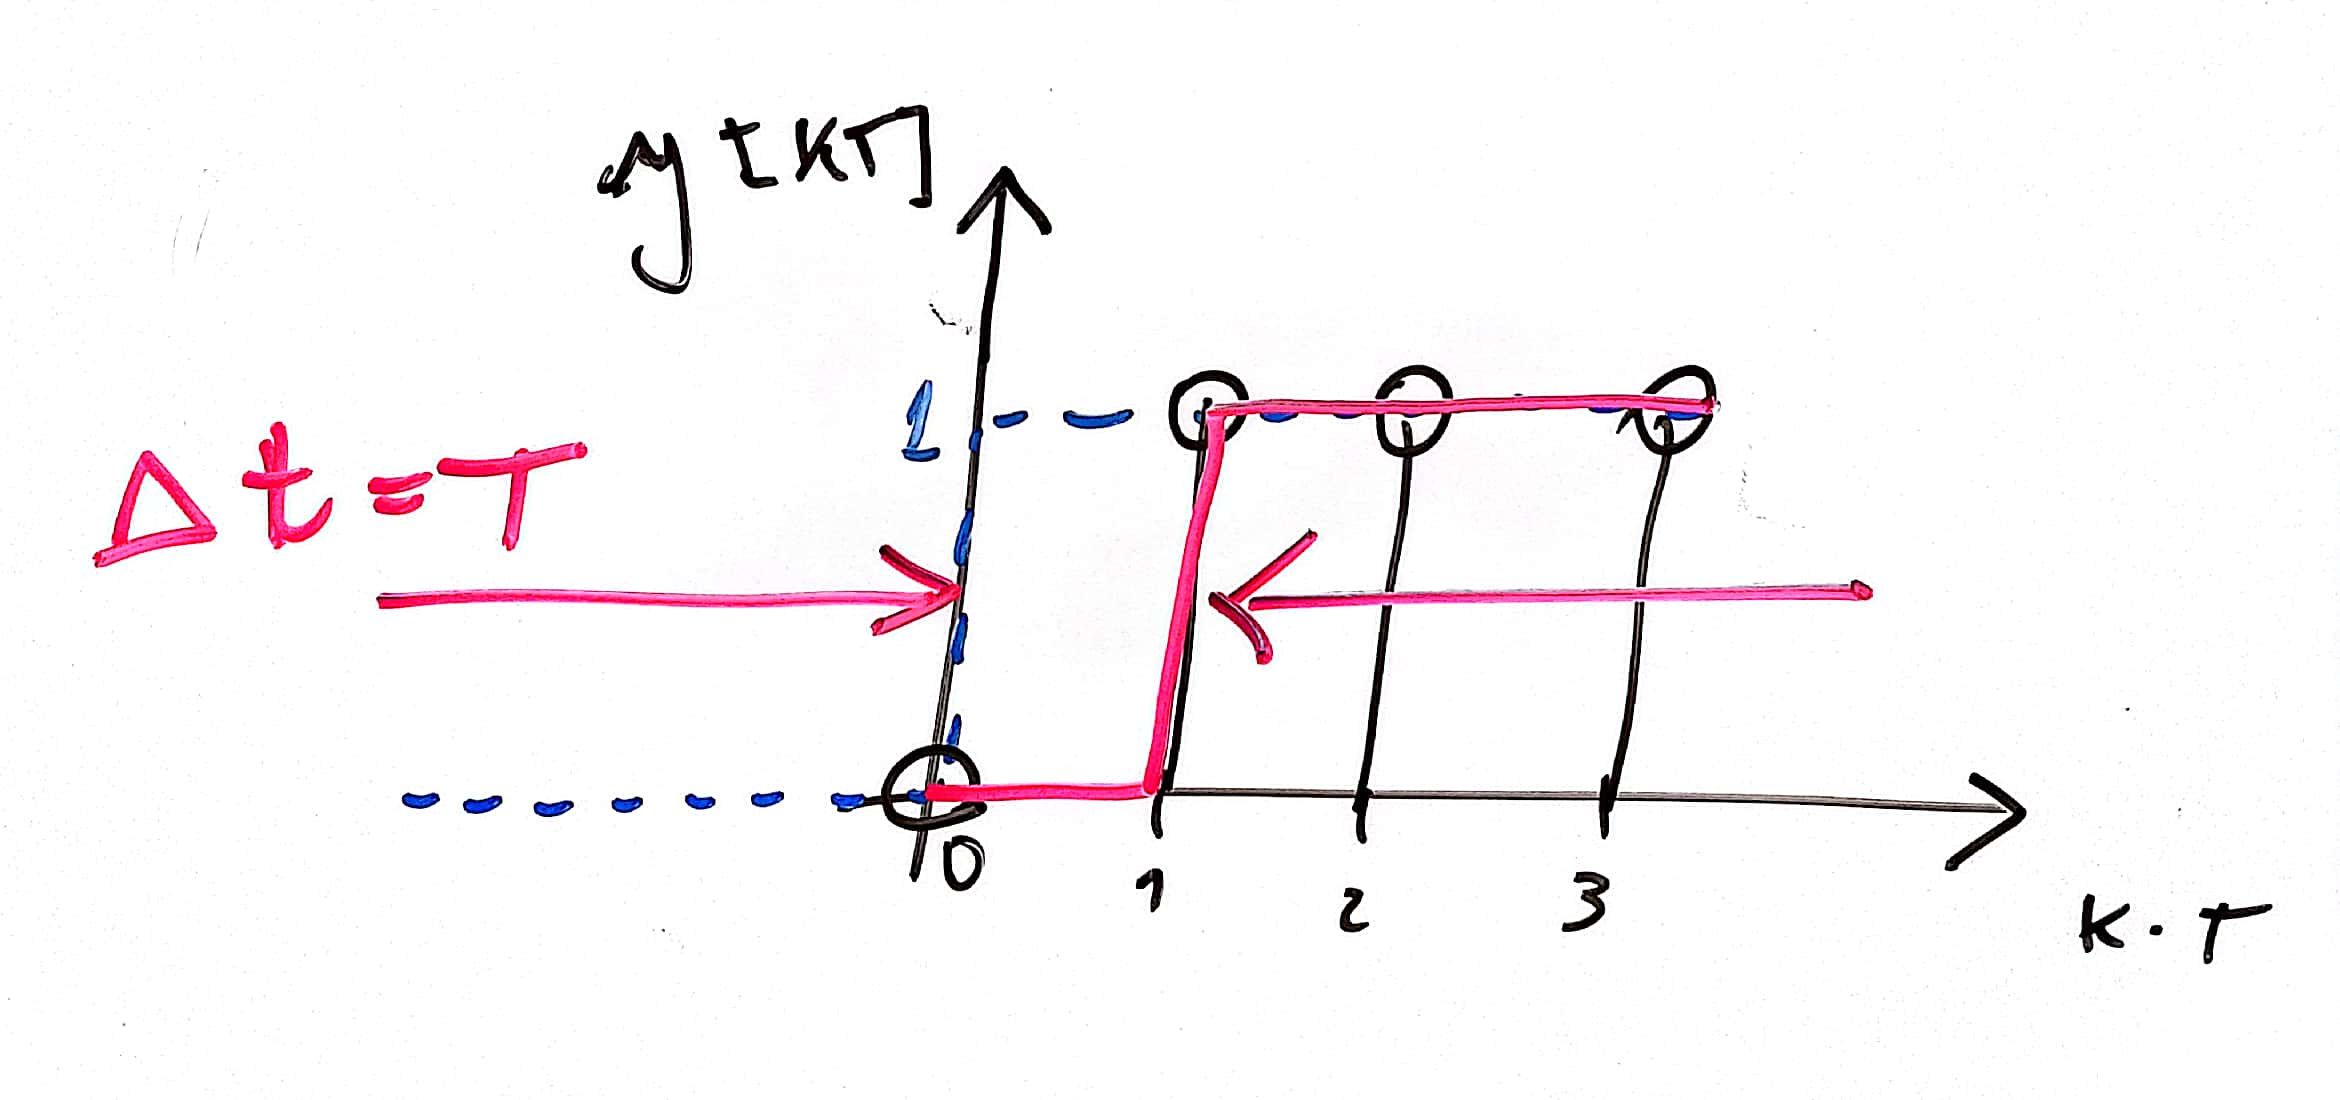 y[kT]
1
Δt=T
0
1 2 3
k·T